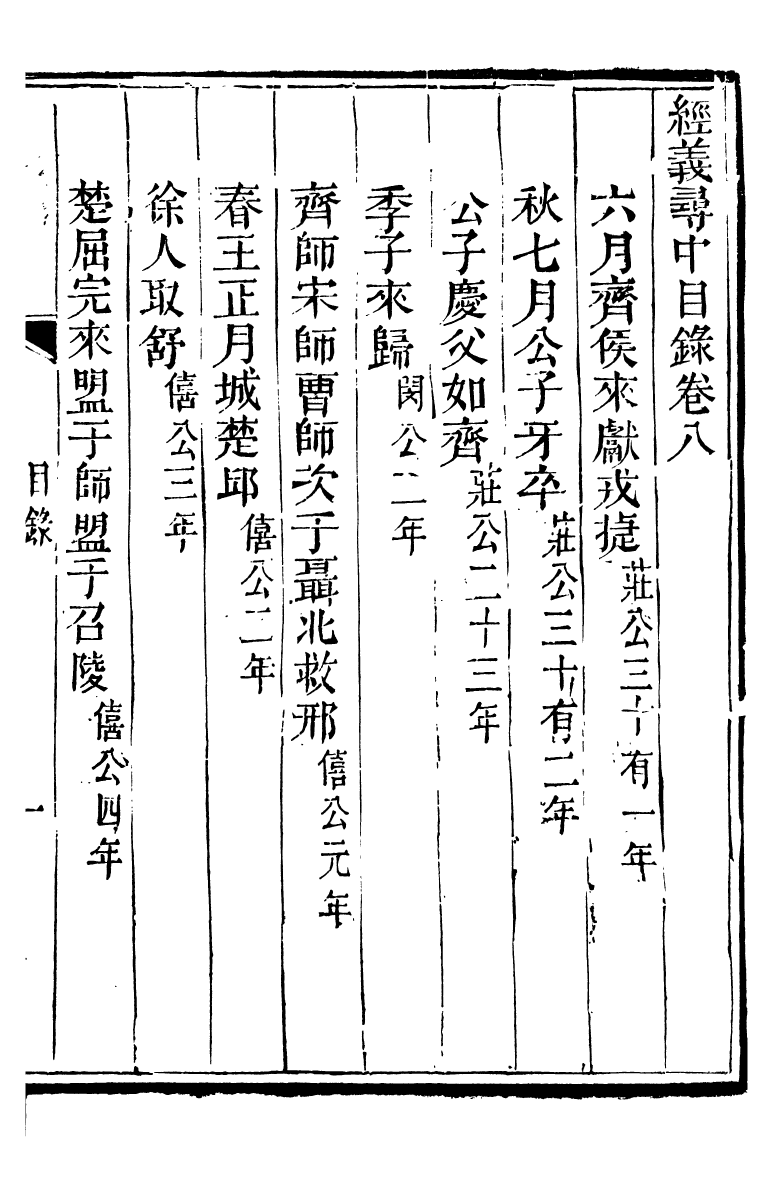 經義尋中目錄卷八
六月齊侯來獻戎捷莊公三十有一年
秋七月公子牙卒莊公三十有二年
公子慶父如齊莊公二十三年
季子來歸閔公二年
齊師宋師曹師次于聶北救邢僖公元年
春王正月城楚邱僖公二年
徐人取舒僖公三年
楚屈完來盟于師盟于召陵僖公四年
目錄
一